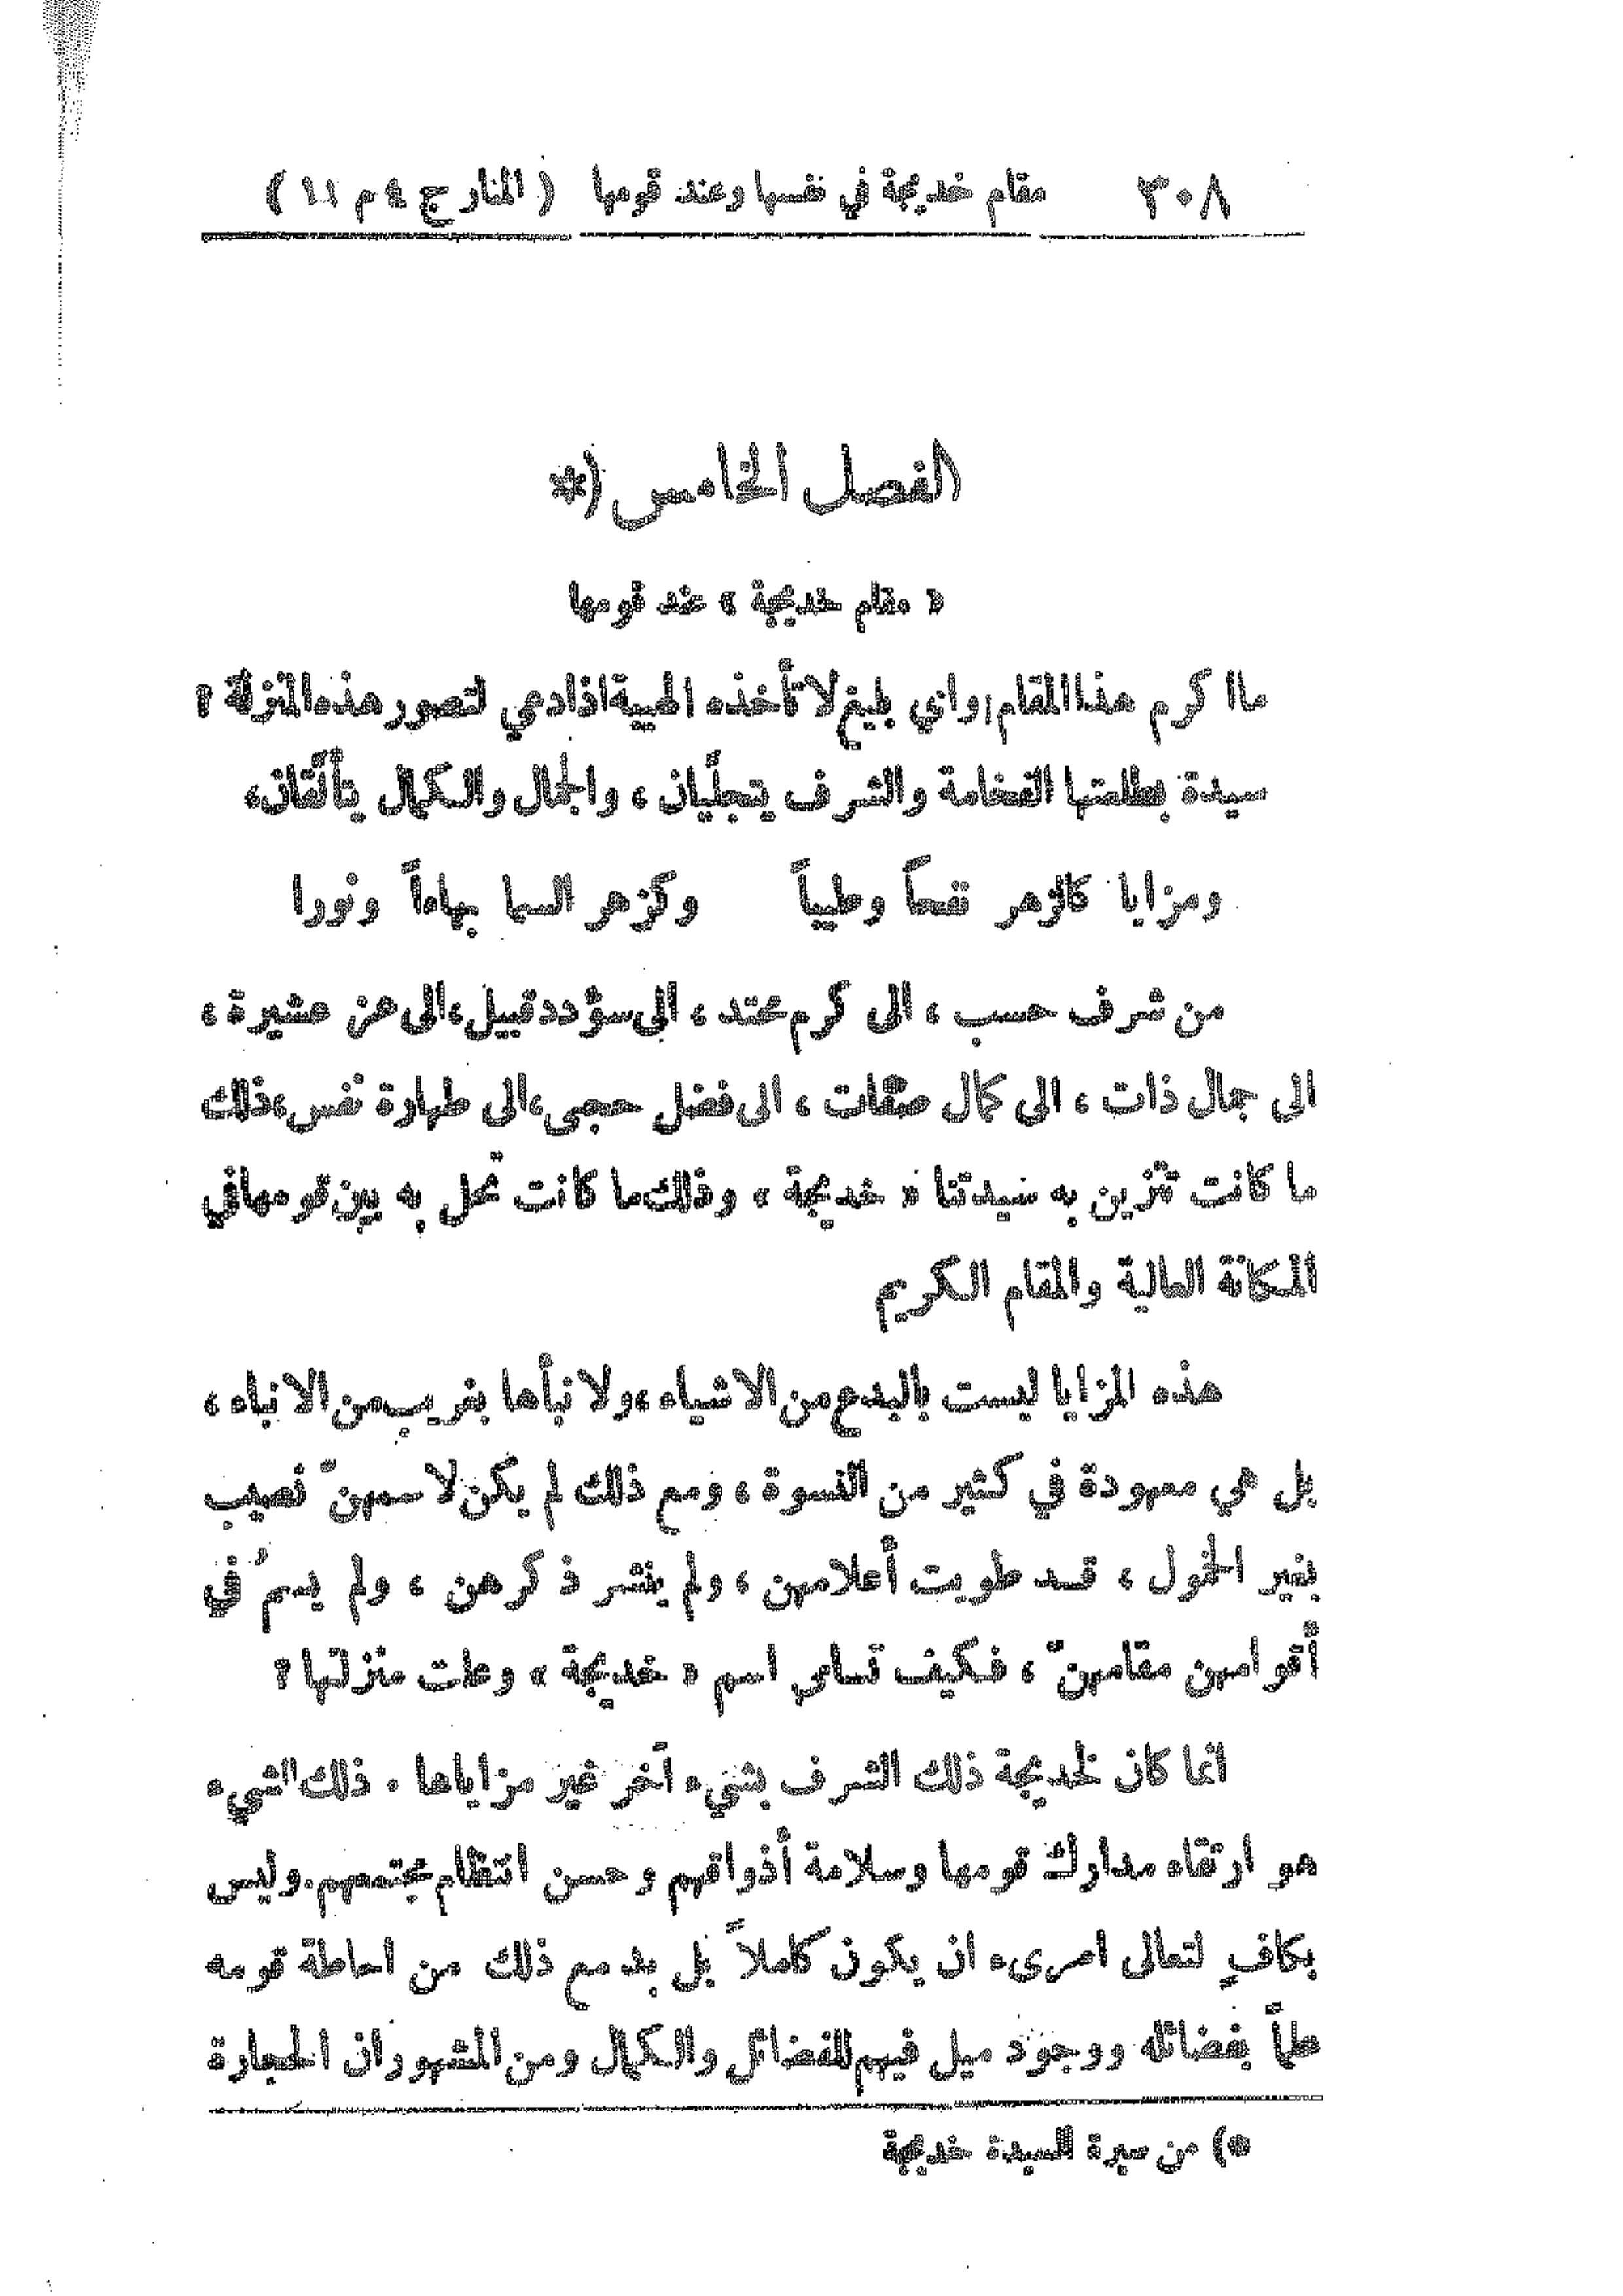 ٣٠٨ مقام خديجة في نفسها وعند قومها ( المنار ج ٤ م ١١ )
الفصل الخامس (*
« مقام خديجة » عند قومها
ما اكرم هذا المقام، واي بليغ لا تأخذه الهيبة اذا دعي لتصور هذه المنزلة ؟
سيدة بطلعتها الفخامة والشرف يتجلَّيان ، والجمال والكمال يتألَّقان،
ومزايا كالزهر نفحاً وطيباً وكزهر السما بهاءاً ونورا
من شرف حسب ، الى كرم محتد ، الى سؤدد قبيل، الى عز عشيرة ،
الى جمال ذات ، الى كمال صفات ، الى فضل حجى، الى طهارة نفس، ذلك
ما كانت تتزين به سيدتنا « خديجة » وذلك ما كانت تحل به بين قومها في
المكانة العالية والمقام الكريم
هذه المزايا ليست بالبدع من الاشياء ، ولا نبأها بغريب من الانباء ،
بل هي معهودة في كثير من النسوة ، ومع ذلك لم يكن لاسمهنّ نصيب
بغير الخمول ، قد طويت أعلامهن ، ولم ينشر ذكرهن ، ولم يسمُ في
أقوامهن مقامهنّ ، فكيف تسامى اسم « خديجة » وعلت منزلتها ؟
انما كان لخديجة ذلك الشرف بشيء آخر غير مزاياها . ذلك الشيء
هو ارتقاء مدارك قومها وسلامة أذواقهم وحسن انتظام مجتمعهم. وليس
بكافٍ لتعالى امرىء ان يكون كاملاً بل بد مع ذلك من احاطة قومه
علماً بفضائله ووجود ميل فيهم للفضائل والكمال ومن المشهور ان الحجارة
*) من سيرة السيدة خديجة